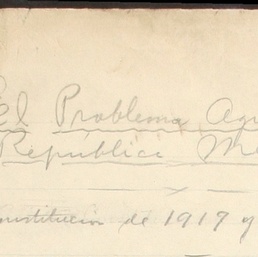 El Problema Agr
República Me
x
onstitucion de 1917 y